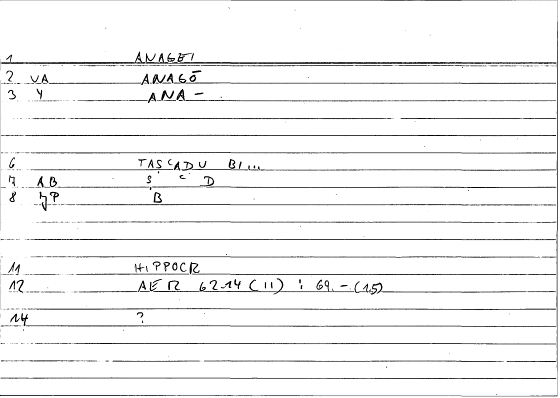 1 ANAGEI
2 VA ANAGŌ
3 Y ANA -
6 TASCADU BI...
7 AB S C D
8 B
11 HIPPOCR
12 AER 62.14 (11) : 69. - (15)
14 ?